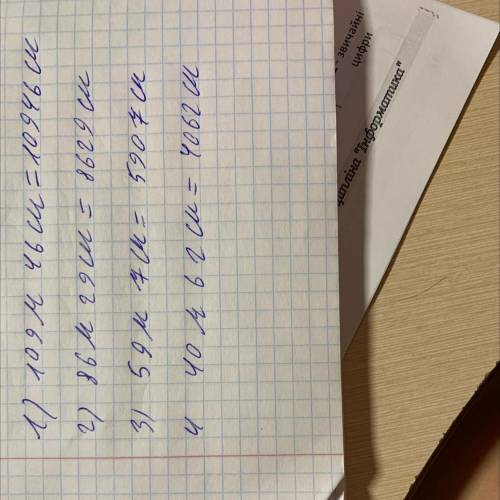 1) 109 м 46 см = 10946 см
2) 86 м 29 см = 8629 см
3) 59 м 7 см = 5907 см
4 40 м 62 см = 4062 см
- звичайні
цифри
"Інформатика"